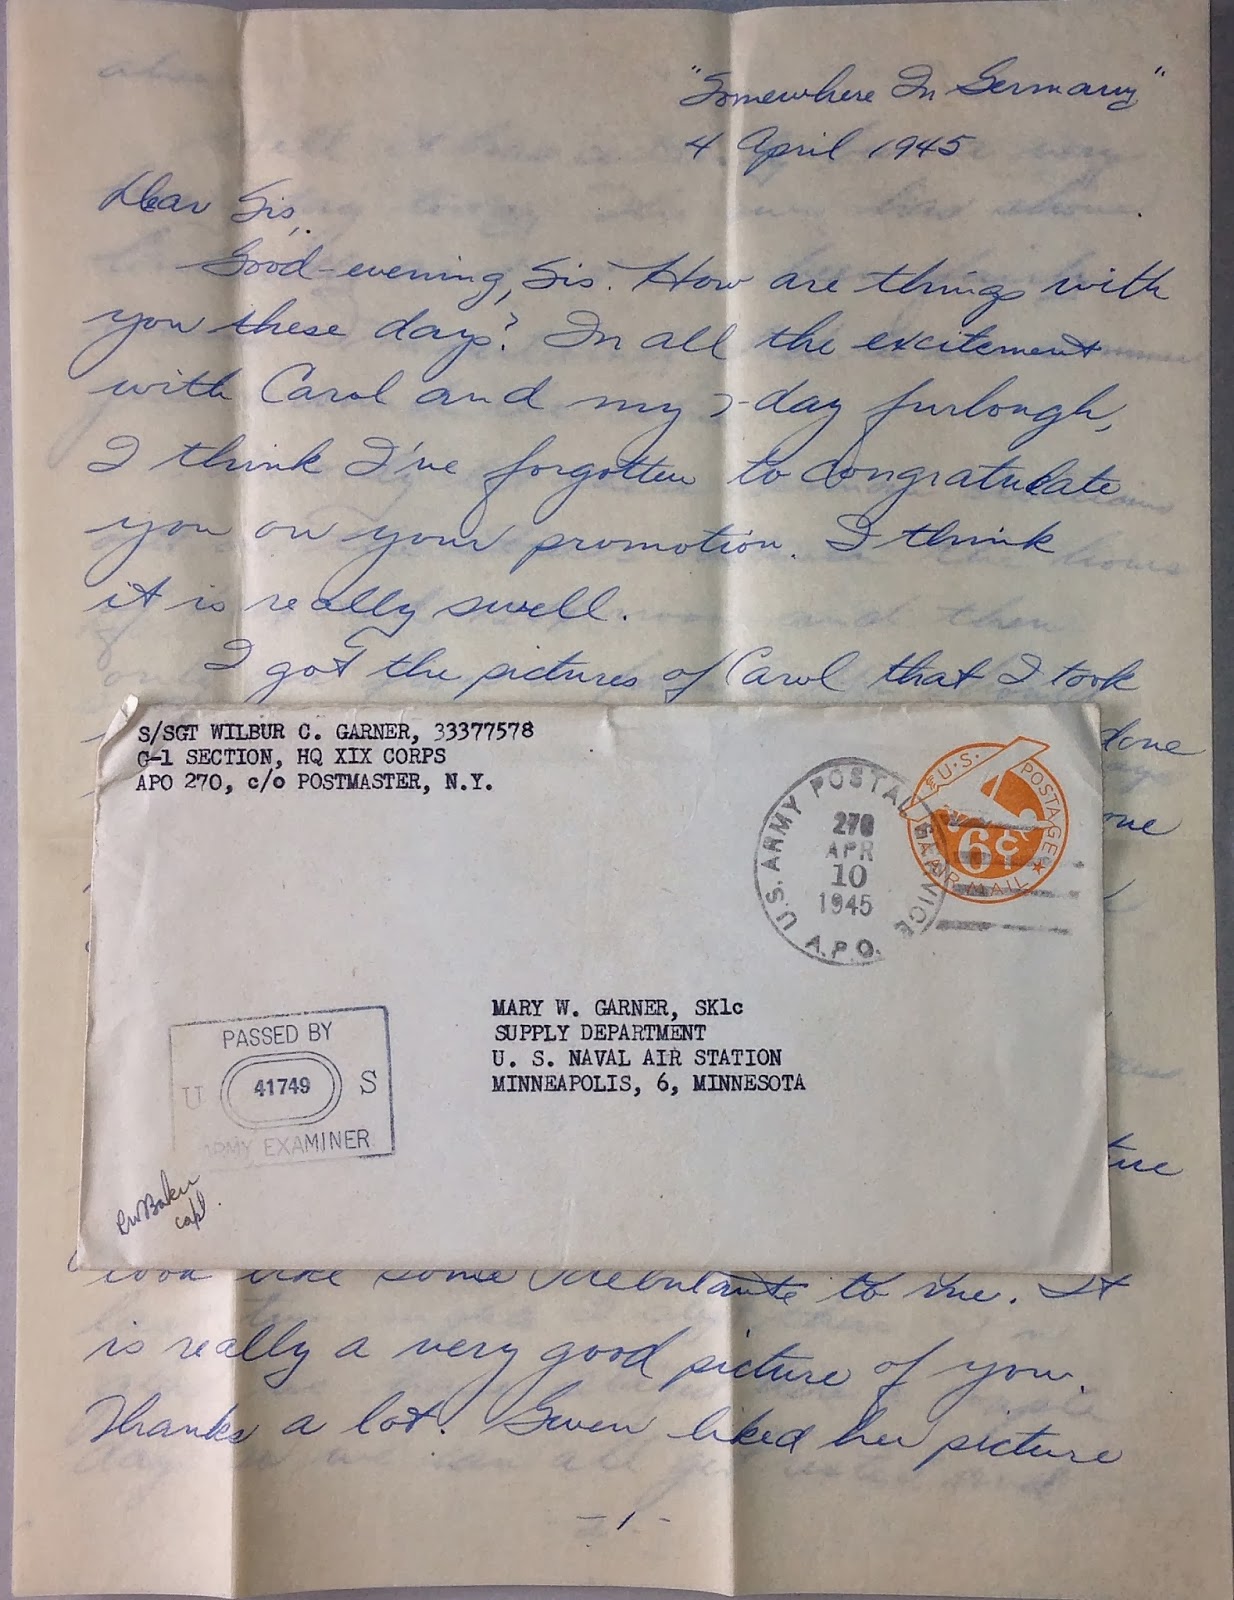 "Somewhere In Germany"
4 April 1945
Dear Sis,
Good-evening, Sis. How are things with
you these days? In all the excitement
with Carol and my 7-day furlough,
I think I've forgotten to congratulate
you on your promotion. I think
it is really swell.
I got the pictures of Carol that I took
done
S/SGT WILBUR C. GARNER, 33377578
G-1 SECTION, HQ XIX CORPS
APO 270, c/o POSTMASTER, N.Y.
U.S. ARMY POSTAL SERVICE
270
APR
10
1945
A.P.O.
U.S. POSTAGE
6¢
AIR MAIL
MARY W. GARNER, SK1c
SUPPLY DEPARTMENT
U. S. NAVAL AIR STATION
MINNEAPOLIS, 6, MINNESOTA
PASSED BY
U 41749 S
ARMY EXAMINER
Baker
capt.
look like some debutante to me. It
is really a very good picture of you.
Thanks a lot. Gwen liked her picture
-1-